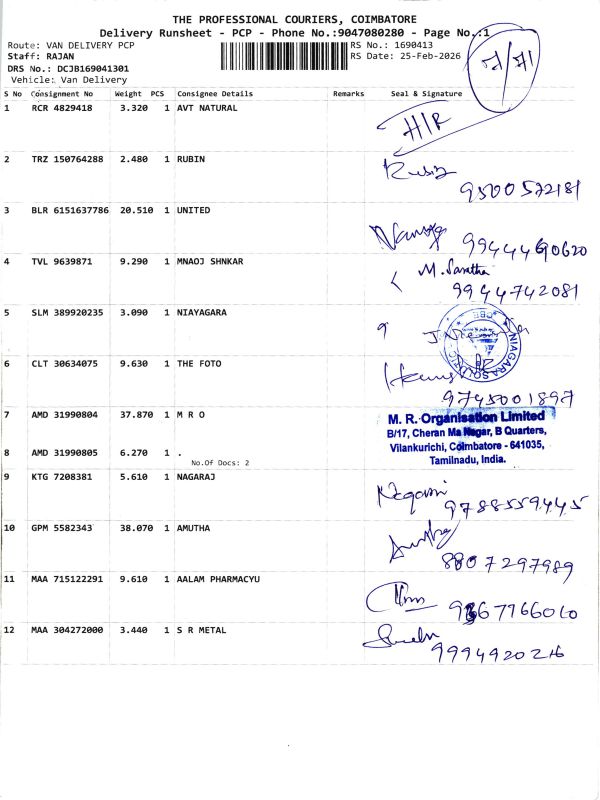 THE PROFESSIONAL COURIERS, COIMBATORE
Delivery Runsheet - PCP - Phone No.:9047080280 - Page No.:1
Route: VAN DELIVERY PCP RS No.: 1690413
Staff: RAJAN RS Date: 25-Feb-2026
DRS No.: DCJB169041301
Vehicle: Van Delivery
S No Consignment No Weight PCS Consignee Details Remarks Seal & Signature
1 RCR 4829418 3.320 1 AVT NATURAL
H/R
2 TRZ 150764288 2.480 1 RUBIN
Rubin
9500572181
3 BLR 6151637786 20.510 1 UNITED
9944490620
4 TVL 9639871 9.290 1 MNAOJ SHNKAR
9944742081
5 SLM 389920235 3.090 1 NIAYAGARA
6 CLT 30634075 9.630 1 THE FOTO
9745001897
7 AMD 31990804 37.870 1 M R O
M. R. Organisation Limited
B/17, Cheran Ma Nagar, B Quarters,
Vilankurichi, Coimbatore - 641035,
Tamilnadu, India.
8 AMD 31990805 6.270 1 .
No.Of Docs: 2
9 KTG 7208381 5.610 1 NAGARAJ
9788559445
10 GPM 5582343 38.070 1 AMUTHA
8807297989
11 MAA 715122291 9.610 1 AALAM PHARMACYU
12 MAA 304272000 3.440 1 S R METAL